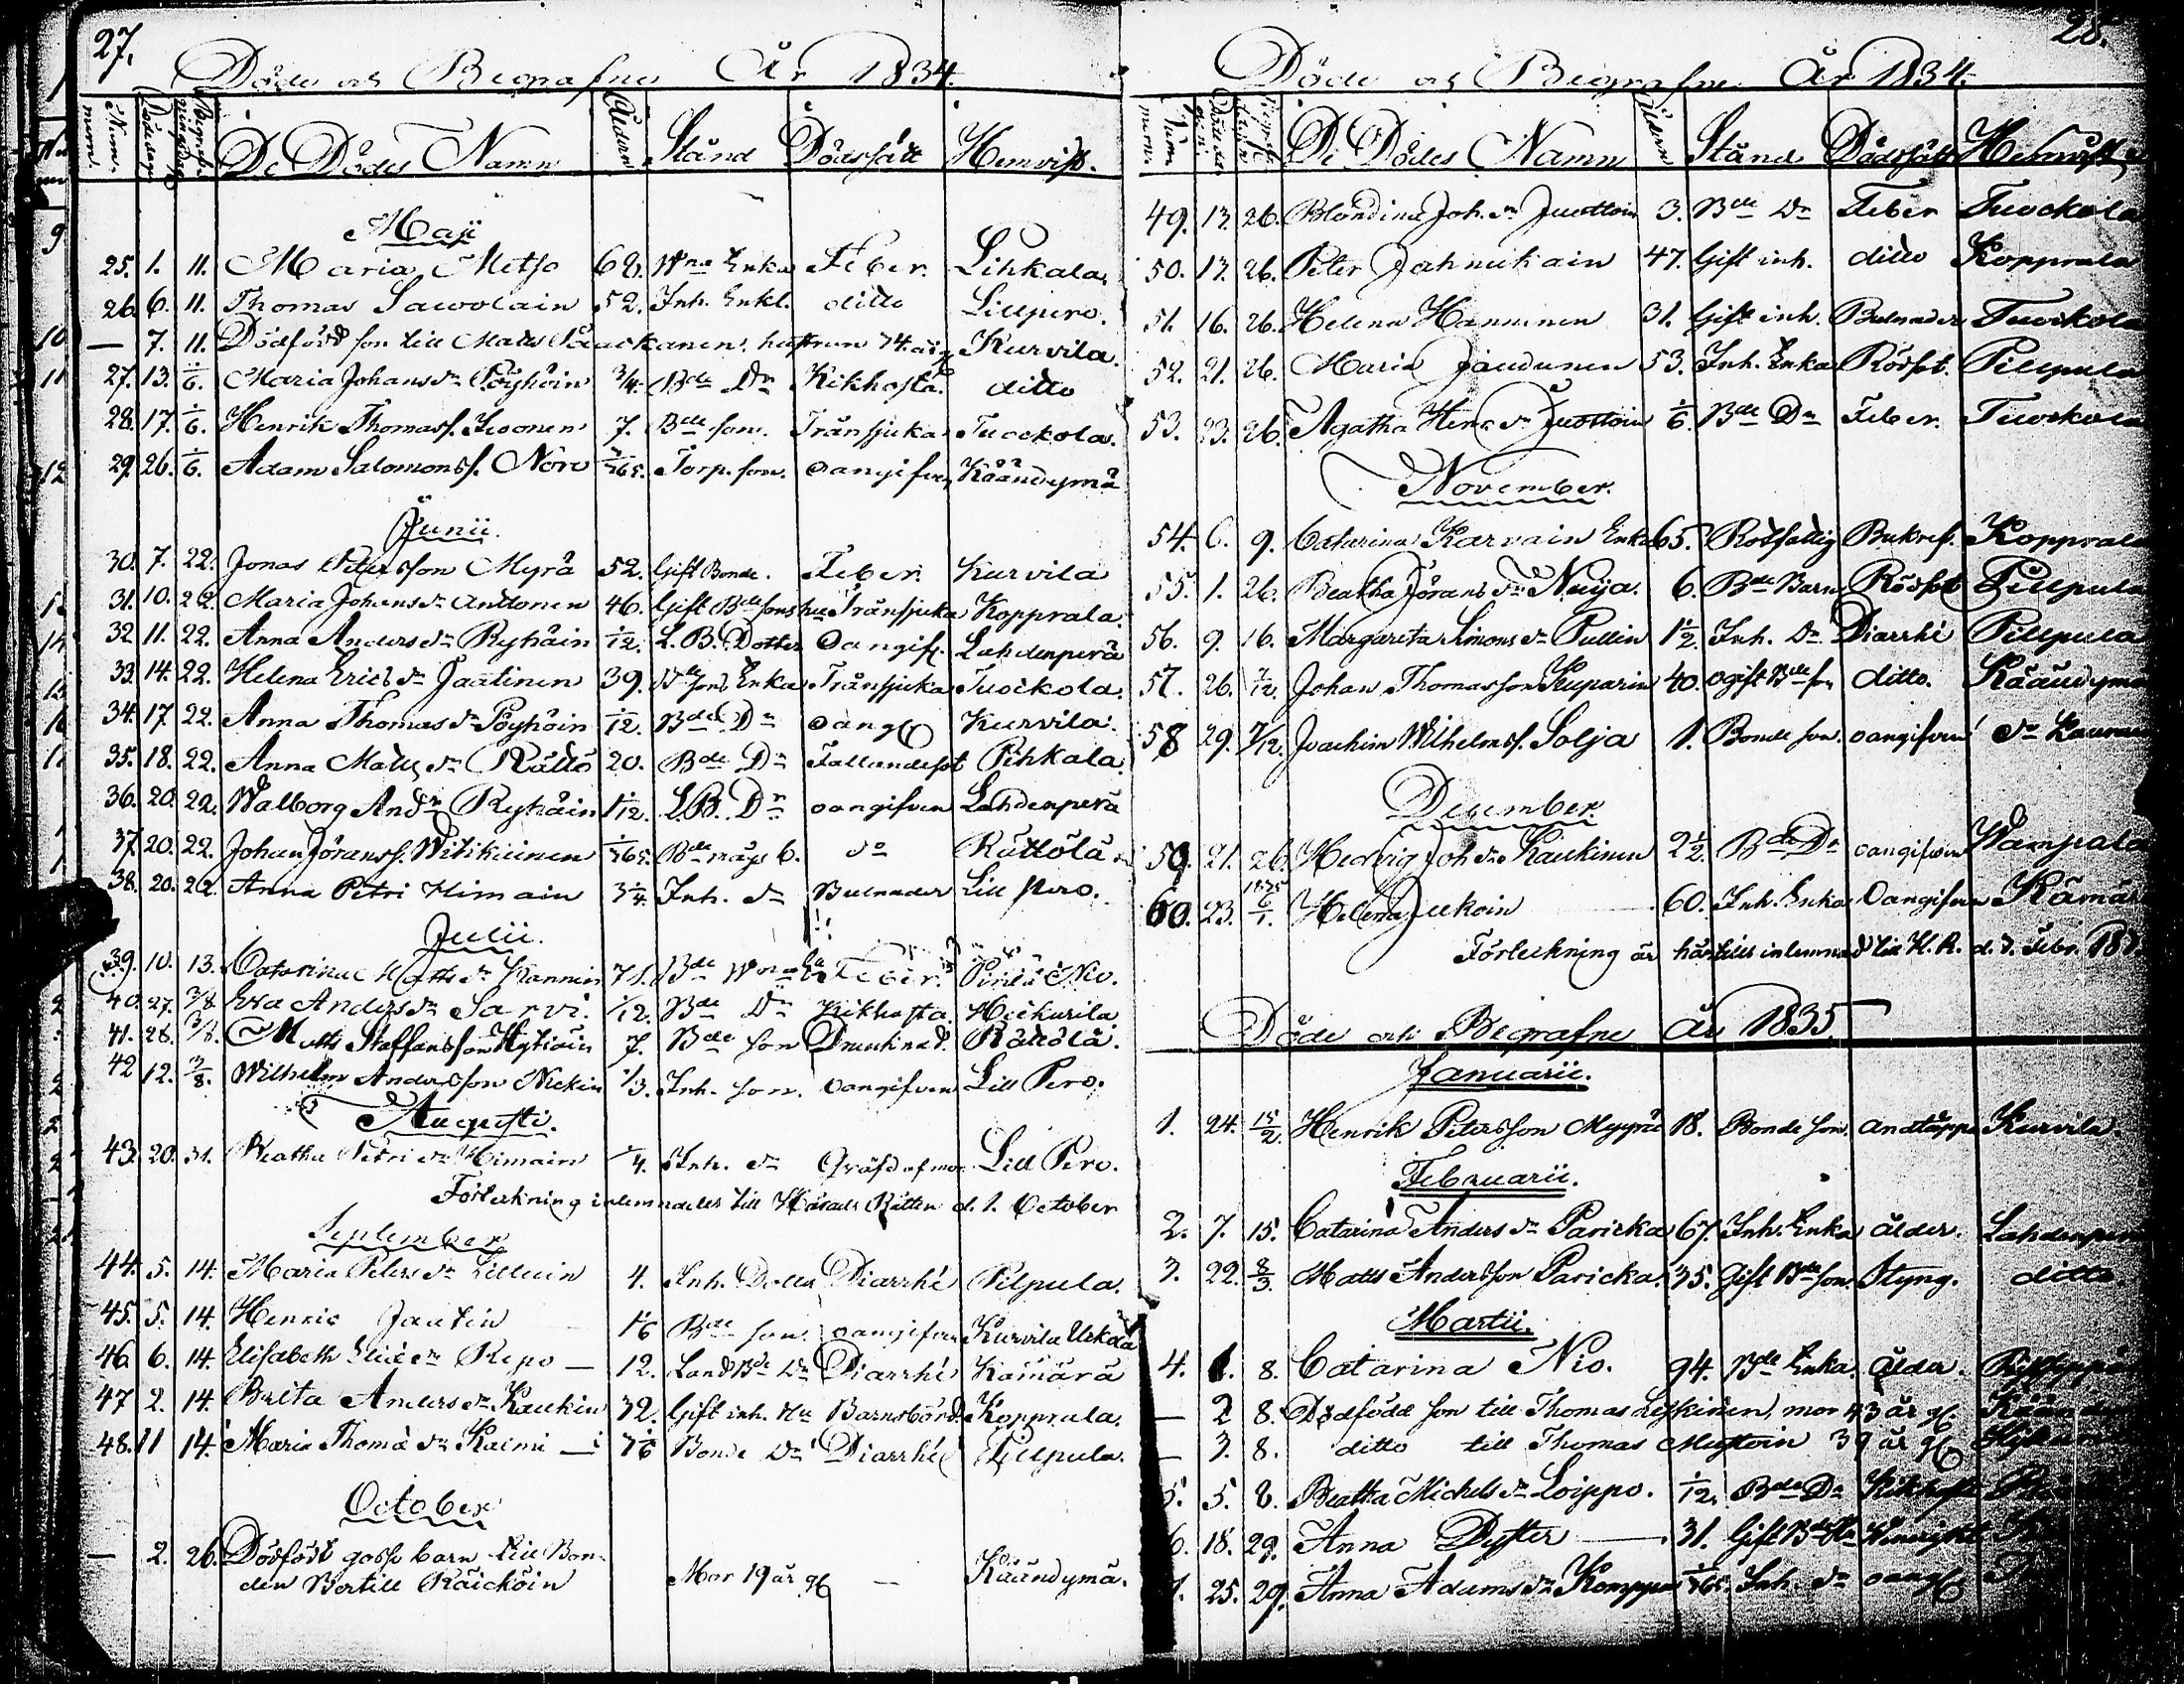 27.
Döde och Begrafne År 1834.
Num̄ mern. Dödedag Begrafningsdag De Dödes Namn Åldern Stånd Dödssätt Hemvist.
Maji
25. 1. 11. Maria Metso 68. Enka Feber. Lihkala
26. 6. 11. Thomas Sawolain 52. Inh. Enkl. ditto Lillpero.
— 7. 11. Dödfödd son till Mats hustrun 74. år Kurvila.
27. 13. 1/6. Maria Johansdr Pöyhöin 3/4. Bde Dr Kikhosta. ditto
28. 17. 1/6. Henrik Thomass. Ihonen 7. Bde son. Trånsjuka Tuockola.
29. 26. 1/6. Adam Salomonss. Noro 7/365. Torp. son. oangifven Käändymä
Junii.
30. 7. 22. Jonas Petersson Myrä 52. Gift Bonde. Feber. Kurvila
31. 10. 22. Maria Johansdr Anttonen 46. Gift Bde sons hu Trånsjuka Kopprala.
32 11. 22. Anna Andersdr Ryhäin 1/12. L. B. Dotter Oangif. Lahdenperä
33. 14. 22. Helena Ericsdr Jaatinen 39. Bde sons Enka Trånsjuka Tuockola.
34. 17 22. Anna Thomasdr Pöyhöin 1/12. Bde Dr oang Kurvila.
35. 18. 22. Anna Matsdr Rättö 20. Bde Dr Fallandesot Pihkala.
36. 20. 22. Walborg Andr Ryhäin 1 1/12. L.B. Dr oangifven Lahdenperä
37. 20. 22. Johan Jöranss. Witikainen 1/365. Bde mågs b. do Rättölä
38. 20. 22. Anna Petri Himain 3 1/4. Inh. dr Bulnader Lill Pero.
Julii.
39. 10. 13. Catarina Mattsdr Hannin 71. Bde Feber.
40. 27. 3/8. Eva Andersdr Sarvi. 1/12. Bde Dr Kikhosta. Heikurila
41. 28. 3/8. Matts Staffansson Hytiäin 7. Bde son Druknad. Rätölä.
42 12. 3/8. Wilhelm Andersson Nickin 1/3. Inh. son. oangifven Lill Pero.
Augusti.
43. 20. 31. Beatha Petri dr Himain 1/4. Inh. dr Qväfd af mor Lill Pero.
Förteckning inlemnades till Härads Rätten d. 1. October
September
44. 5. 14. Maria Petersdr Lilluin 4. Inh. Dotter Diarrhé Pilpula.
45. 5. 14. Henric Jautin 1/6 Bde son. oangifven Kurvila
46. 6. 14. Elisabeth Eliædr Repo — 12. Land Bde Dr Diarrhé Kämärä
47 2. 14. Brita Andersdr Kaukin 32. Gift inh. Hu Barnsbörd. Kopprala.
48. 11 14. Maria Thomädr Kaimi — 3 1/6 Bonde Dr Diarrhé Pillpula.
October
— 2. 26. Dödfödt gosse barn till Bon-
den Bertill Räicköin Mor 19 år — Käändymä.
28.
Döde och Begrafne År 1834.
Num̄ mern. De Dödes Namn Åldern Stånd Dödssätt Hemvist
49. 13. 26. Blondina Joh. dr Juottoin 3. Bde Dr Feber Tuockola
50. 17. 26. Peter Jahnukain 47. Gift inh. ditto Kopprala
51. 16. 26. Helena Hanninen 31. Gift inh. Bulnader Tuockola
52. 21. 26. Maria Jäudunen 53. Inh. Enka Rödsot. Pillpula
53. 23. 26. Agatha Henr dr Juottoin 1/6. Bde Dr Feber. Tuockola
November.
54. 6. 9. Catarina Karvain Enka 65. Rotfattig Bukref. Kopprala
55. 1. 26. Beatha Jöransdr Nuija. 6. Bde Barn Rödsot Pillpula
56. 9. 16. Margareta Simonsdr Pullin 1 1/2. Inh. Dr Diarrhé Pillpula
57. 26. 7/12. Johan Thomasson Kuparin 40. ogift Bde son ditto. Käändymä
58 29. 7/12. Joachim Wilhelmss. Solja 1. Bonde son. oangifven
December.
59. 21. 26. Hedvig Joh dr Kaukinen 2 1/2. Bde Dr oangifven Wampala
60. 23. 1835 6/1. Helena Jukoin 60. Inh. Enka Oangifven Kämär
Förteckning är härtills inlemnad till H. R. d. 3. Febr. 183
Döde och Begrafne År 1835.
Januarii.
1. 24. 15/2. Henrik Petersson Myyrä 18. Bonde son. andtäppa Kurvila.
Februarii.
2. 7. 15. Catarina Andersdr Paricka 67. Inh. Enka ålder. Lahdenperä
3. 22. 8/3. Matts Andersson Paricka. 35. Gift Bde son. Styng. ditto
Martii.
4. 1. 8. Catarina Nio. 94. Bde Enka. Ålder.
— 2 8. Dödfödd son till Thomas Leskinen, mor 43 år
— 3. 8. ditto till Thomas Mustoin 39 år
5. 5. 8. Beatha Michelsdr Loippo. 1/12. Bde Dr Kikhosta
6. 18. 29. Anna Dyster — 31. Gift
7. 25. 29. Anna Adamsdr Komppa 1/365. Inh. dr oang